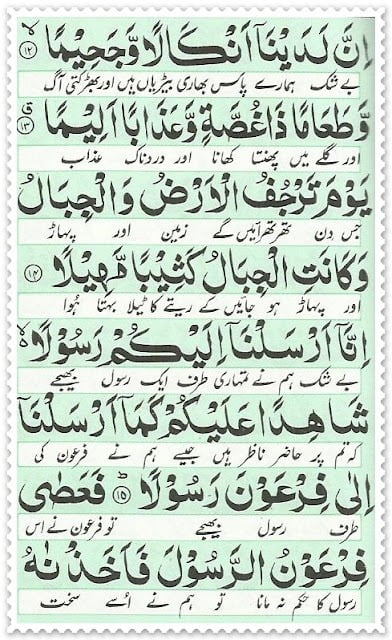 اِنَّ لَدَيْنَاۤ اَنْكَالًا وَّجَحِيْمًا ۙ﴿۱۲﴾
بے شک ہمارے پاس بھاری بیڑیاں ہیں اور بھڑکتی آگ
وَّطَعَامًا ذَا غُصَّةٍ وَّعَذَابًا اَلِيْمًا ۗ﴿۱۳﴾
اور گلے میں پھنستا کھانا اور دردناک عذاب
يَوْمَ تَرْجُفُ الْاَرْضُ وَالْجِبَالُ
جس دن تھرتھرائیں گے زمین اور پہاڑ
وَكَانَتِ الْجِبَالُ كَثِيْبًا مَّهِيْلًا ﴿۱۴﴾
اور پہاڑ ہو جائیں گے ریتے کا ٹیلا بہتا ہُوا
اِنَّاۤ اَرْسَلْنَاۤ اِلَيْكُمْ رَسُوْلًا ۙ
بے شک ہم نے تمہاری طرف ایک رسول بھیجے
شَاهِدًا عَلَيْكُمْ كَمَاۤ اَرْسَلْنَاۤ
کہ تم پر حاضر ناظر ہیں جیسے ہم نے فرعون کی
اِلٰى فِرْعَوْنَ رَسُوْلًا ؕ﴿۱۵﴾ فَعَصٰى
طرف رسول بھیجے تو فرعون نے اس
فِرْعَوْنُ الرَّسُوْلَ فَاَخَذْنٰهُ
رسول کا حکم نہ مانا تو ہم نے اُسے سخت